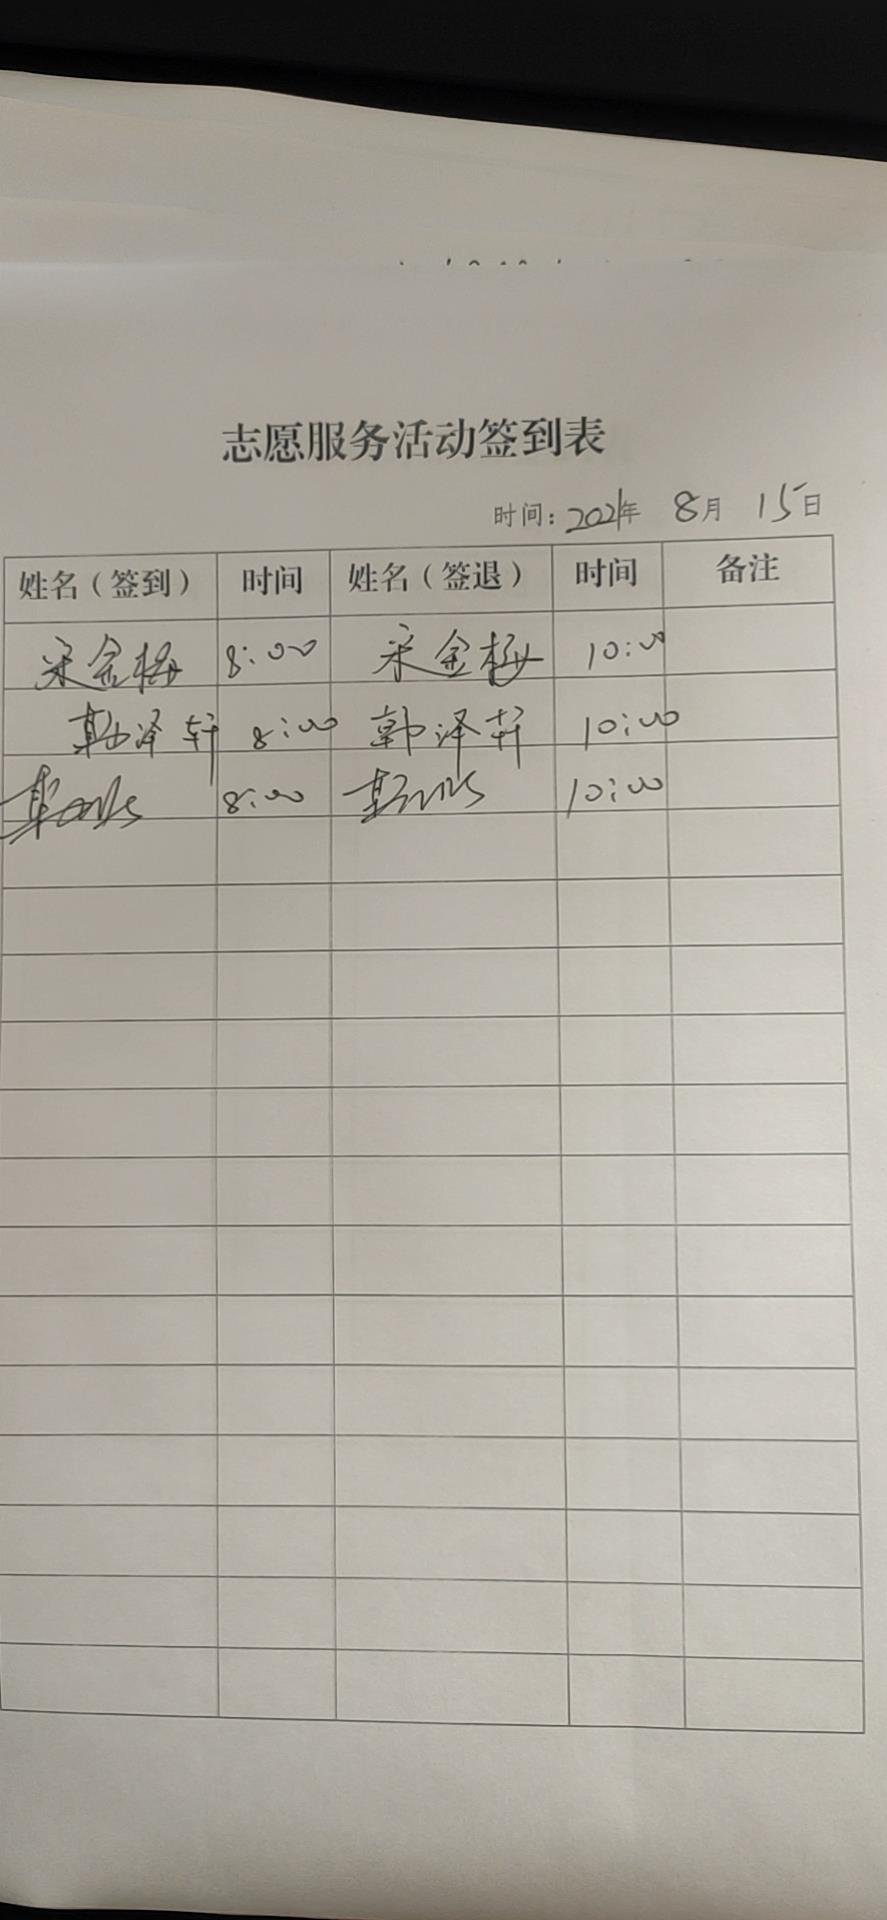 志愿服务活动签到表
时间：2021年 8月 15日
姓名（签到） 时间 姓名（签退） 时间 备注
宋金梅 8:00 宋金梅 10:00
韩泽轩 8:00 韩泽轩 10:00
8:00 10:00